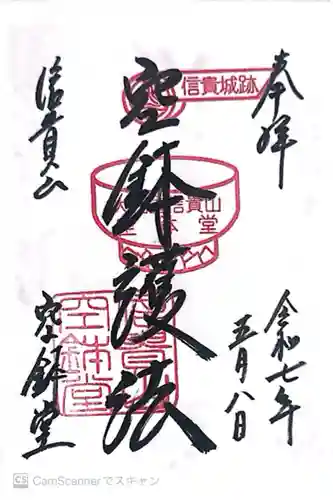 奉拝
令和七年
五月八日
空鉢護法
信貴山
空鉢堂
信貴城跡
信貴山
本
堂
空鉢堂
CS CamScannerでスキャン